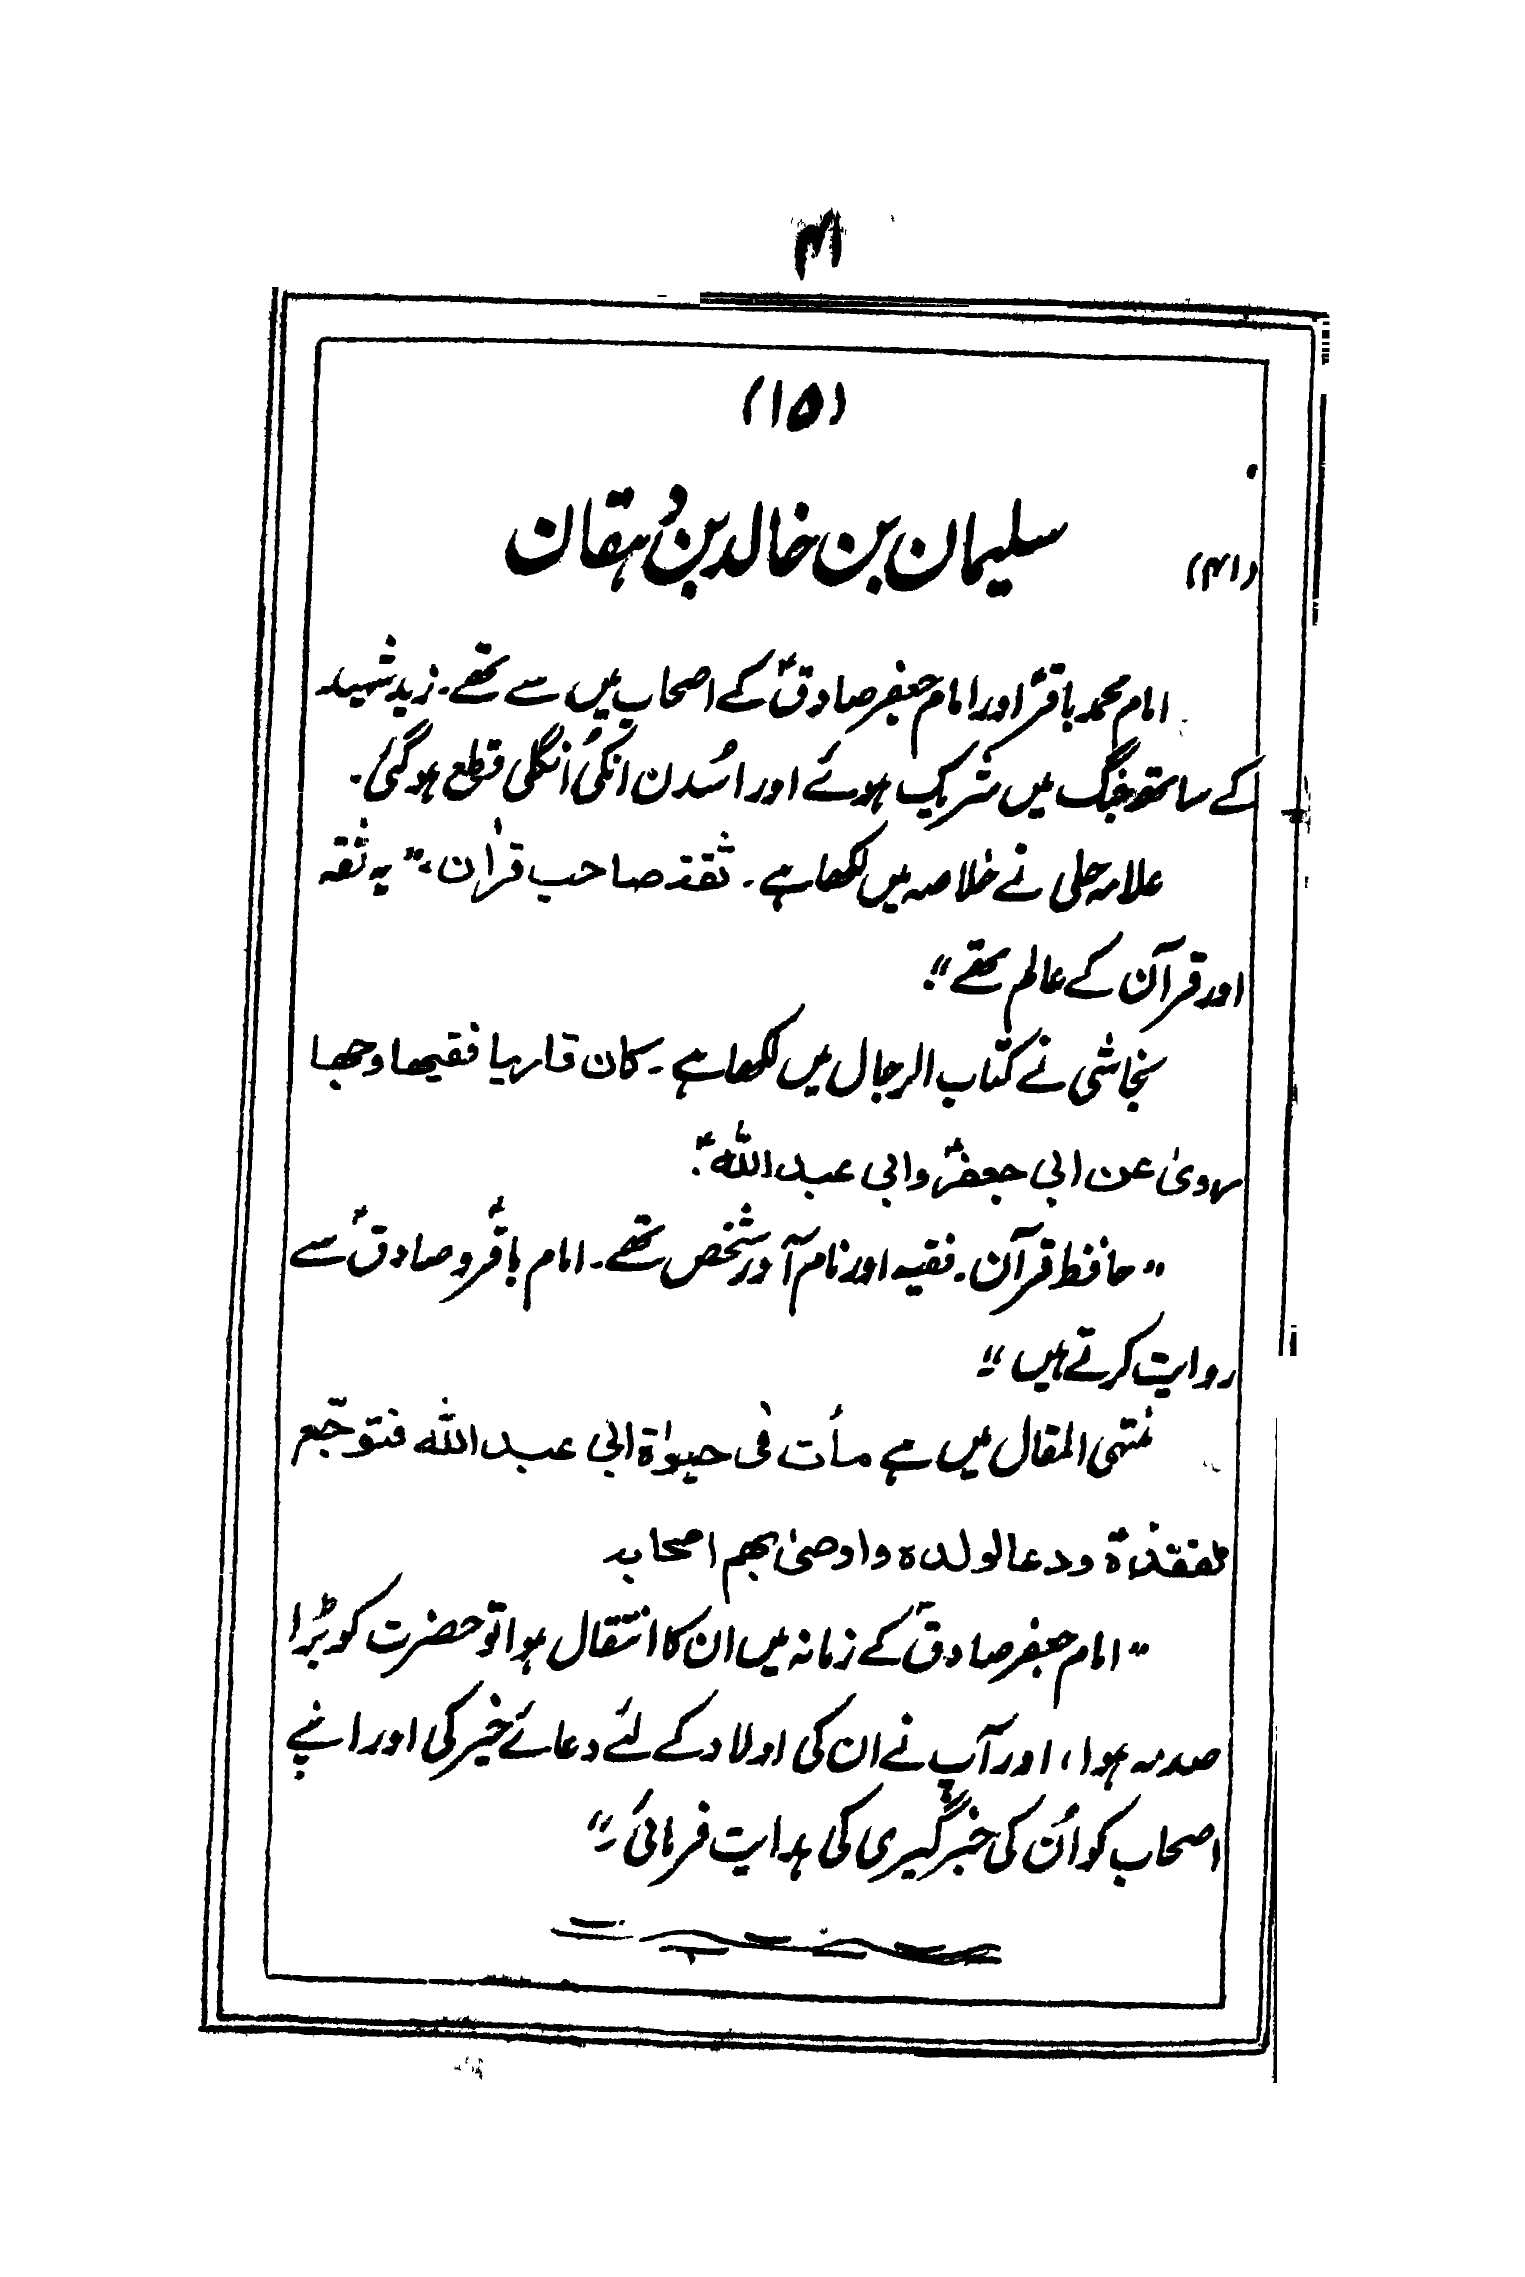 ۴۱
(۱۵)
سلیمان بن خالد بن دُہقان
(۴۱)
امام محمد باقرؑ اور امام جعفر صادقؑ کے اصحاب میں سے تھے۔ زید شہید
کے ساتھ جنگ میں شریک ہوئے اور اسُدن انکی اُنگلی قطع ہوگئی۔
علامہ حلی نے خلاصہ میں لکھا ہے۔ ثقۃ صاحب قراٰن، "یہ ثقہ
اور قرآن کے عالم تھے"۔
نجاشی نے کتاب الرجال میں لکھا ہے۔ کان قاریا فقیھا وجھا
روىٰ عن ابی جعفرؑ وابی عبداللہؑ۔
"حافظ قرآن۔ فقیہ اور نام آور شخص تھے۔ امام باقرؑ و صادقؑ سے
روایت کرتے ہیں"۔
منتہی المقال میں ہے مات فی حیوٰۃ ابی عبداللہ فتوجّع
لفقدہٗ ودعا لولدہ واوصیٰ بھم اصحابہ
"امام جعفر صادقؑ کے زمانہ میں ان کا انتقال ہوا تو حضرت کو بڑا
صدمہ ہوا، اور آپ نے ان کی اولاد کے لئے دعائے خیر کی اور اپنے
اصحاب کو اُن کی خبر گیری کی ہدایت فرمائی۔"